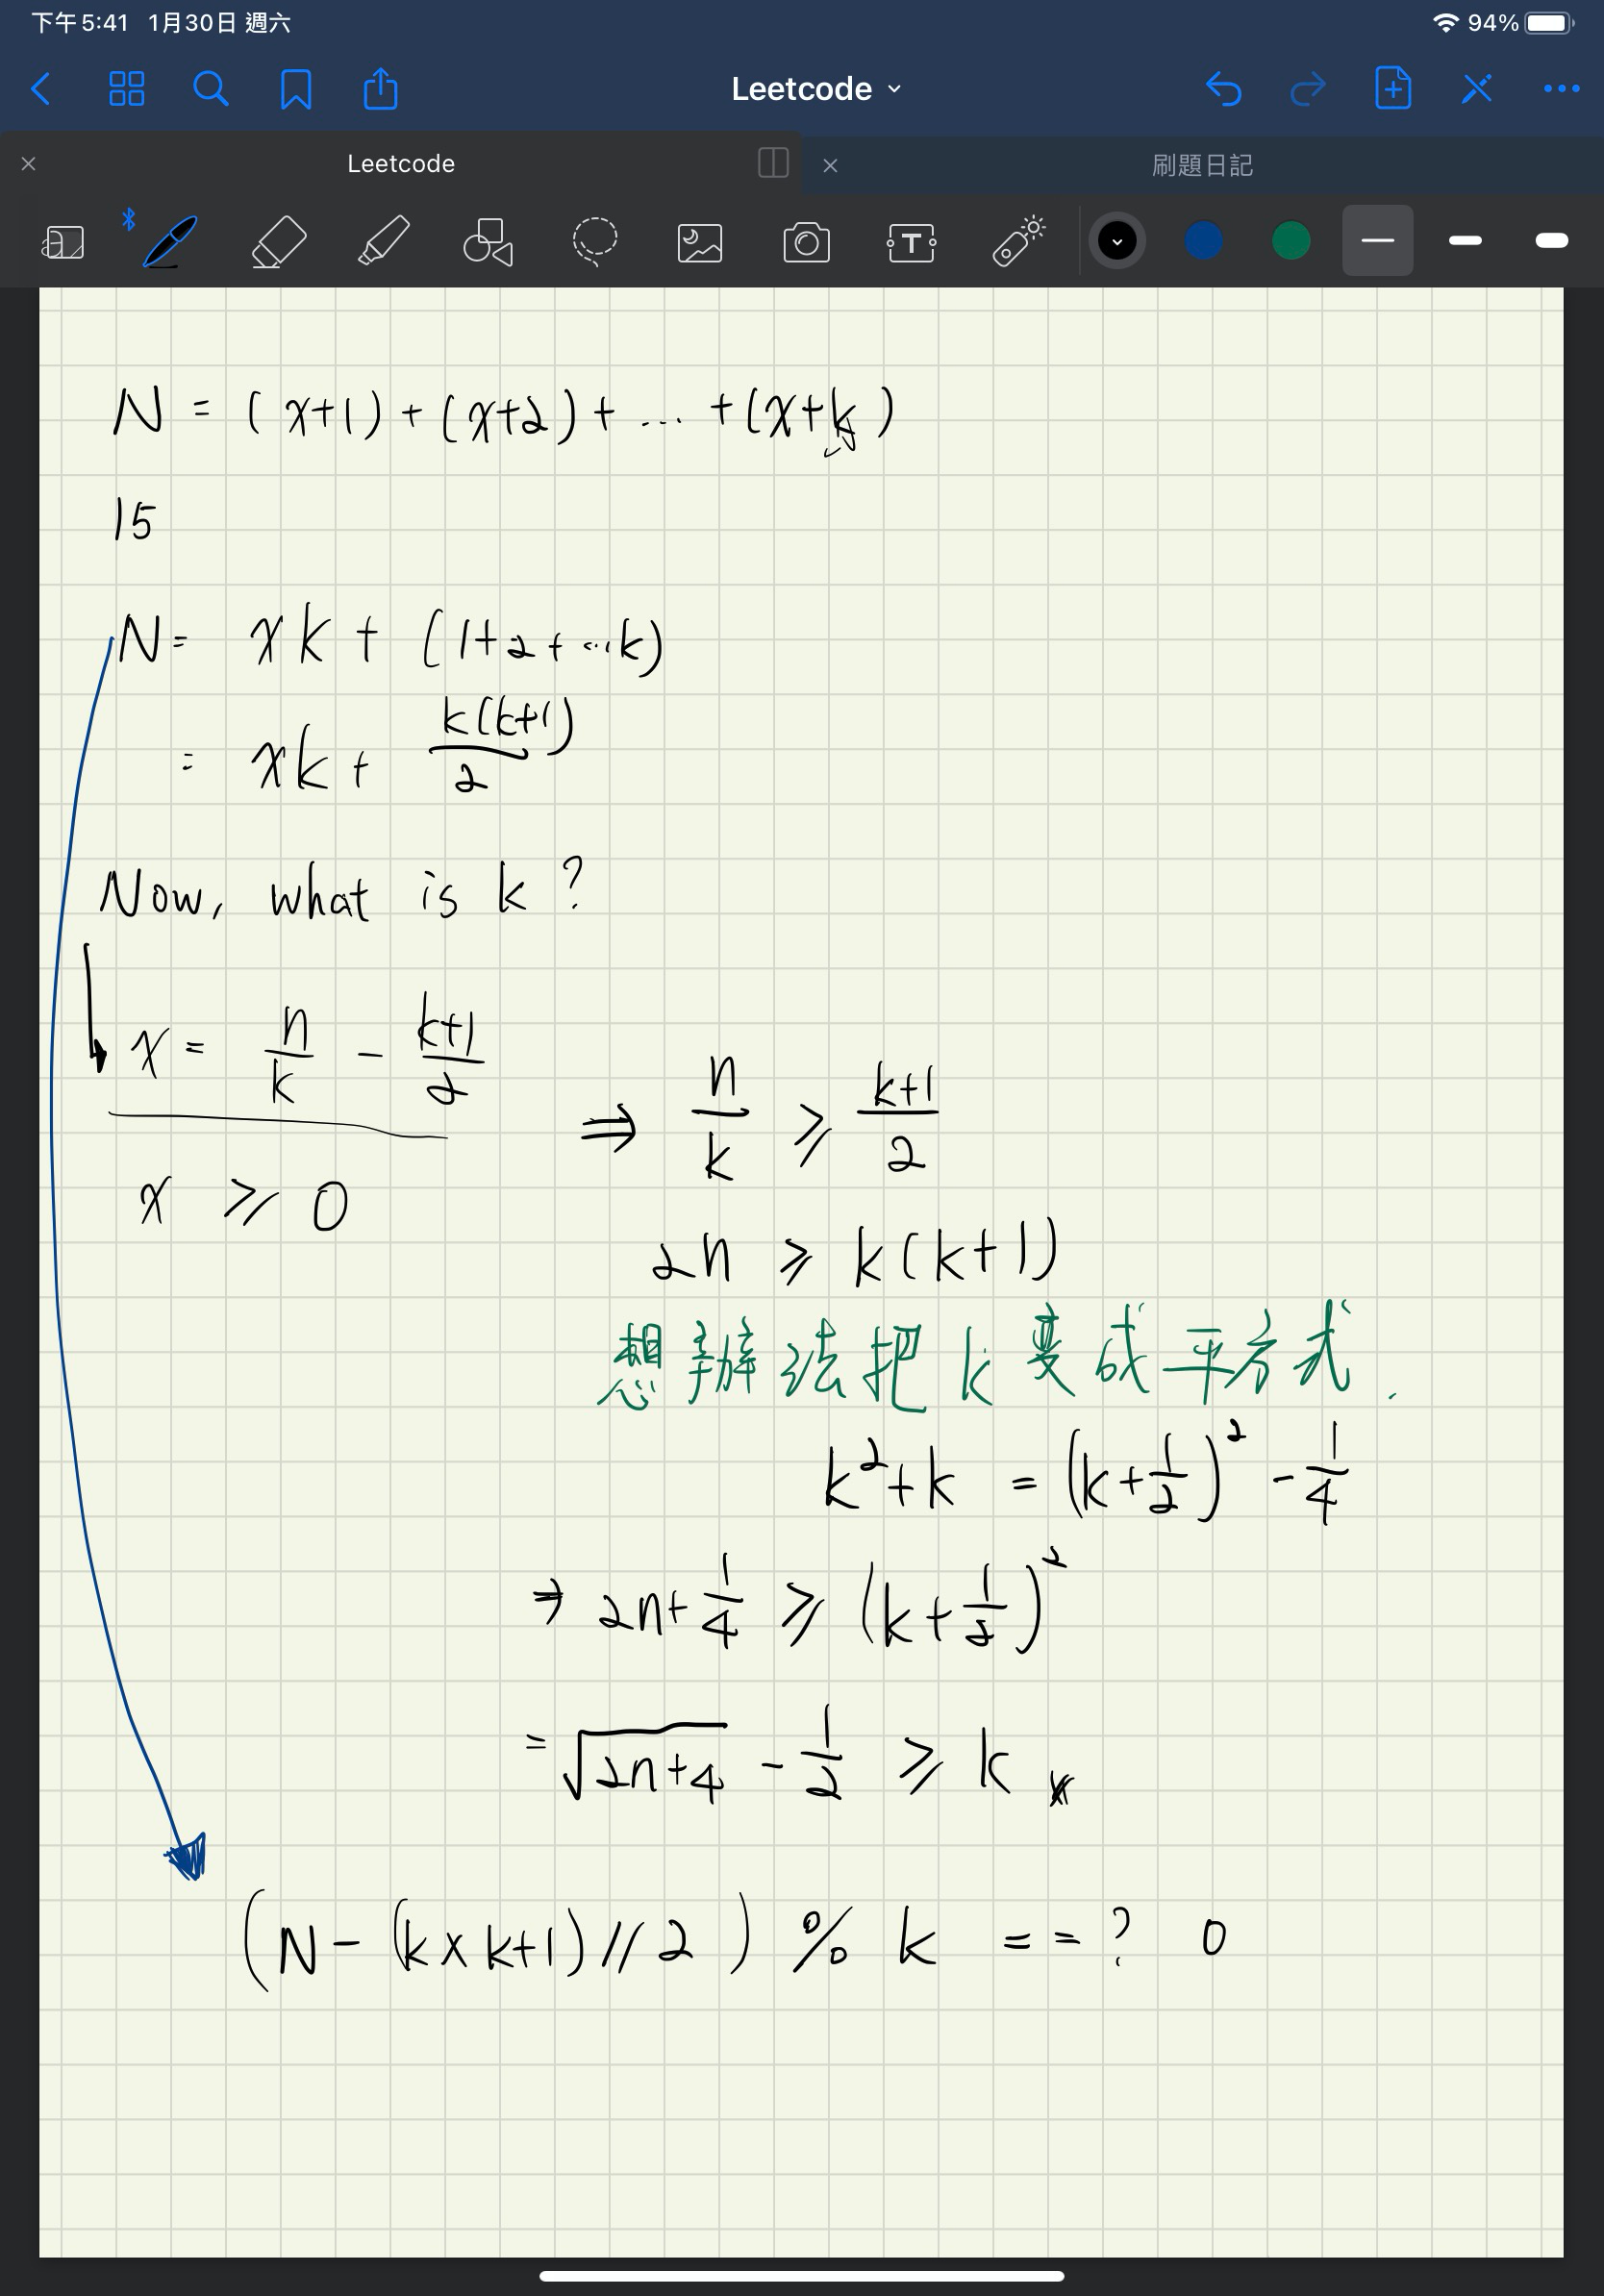 下午5:41 1月30日 週六 94%
Leetcode
Leetcode 刷題日記
N = (x+1) + (x+2) + ... + (x+k)
15
N = xk + (1+2+...k)
= xk + k(k+1)/2
Now, what is k ?
x = n/k - (k+1)/2
⇒ n/k ≥ (k+1)/2
x ≥ 0
2n ≥ k(k+1)
想辦法把 k 變成平方式.
k²+k = (k+1/2)² - 1/4
⇒ 2n+1/4 ≥ (k+1/2)²
= √(2n+4) - 1/2 ≥ k
(N - (k x k+1) // 2) % k == ? 0